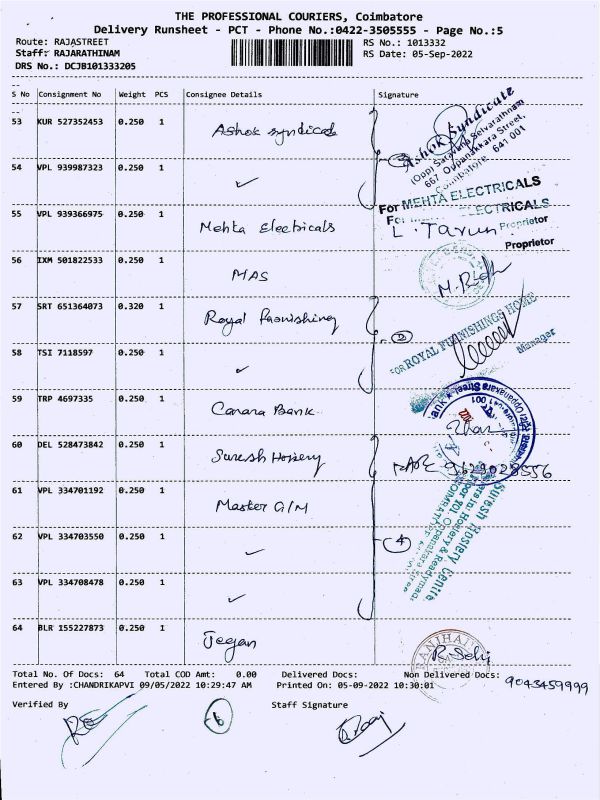 THE PROFESSIONAL COURIERS, Coimbatore
Delivery Runsheet - PCT - Phone No.:0422-3505555 - Page No.:5
Route: RAJASTREET RS No.: 1013332
Staff: RAJARATHINAM RS Date: 05-Sep-2022
DRS No.: DCJB101333205
S No Consignment No Weight PCS Consignee Details Signature
53 KUR 527352453 0.250 1 Ashok Syndicate
Ashok Syndicate
(Opp) Saravana Selvarathnam
667, Oppanakkara Street,
Coimbatore 641 001
54 VPL 939987323 0.250 1 ✓
For MEHTA ELECTRICALS
55 VPL 939366975 0.250 1 Mehta Electricals
L. Tarun Proprietor
Proprietor
56 IXM 501822533 0.250 1 MAS
57 SRT 651364073 0.320 1 Royal Furnishing
FOR ROYAL FURNISHINGS HOME
Manager
2
58 TSI 7118597 0.250 1 ✓
59 TRP 4697335 0.250 1 Canara Bank
60 DEL 528473842 0.250 1 Suresh Hosiery
9629028556
61 VPL 334701192 0.250 1 Master G/M
Suresh Hosiery Centre
62 VPL 334703550 0.250 1 ✓
4
63 VPL 334708478 0.250 1 ✓
64 BLR 155227873 0.250 1 Jegan
Total No. Of Docs: 64 Total COD Amt: 0.00 Delivered Docs: Non Delivered Docs:
9043459999
Entered By :CHANDRIKAPVI 09/05/2022 10:29:47 AM Printed On: 05-09-2022 10:30:01
Verified By Staff Signature
6